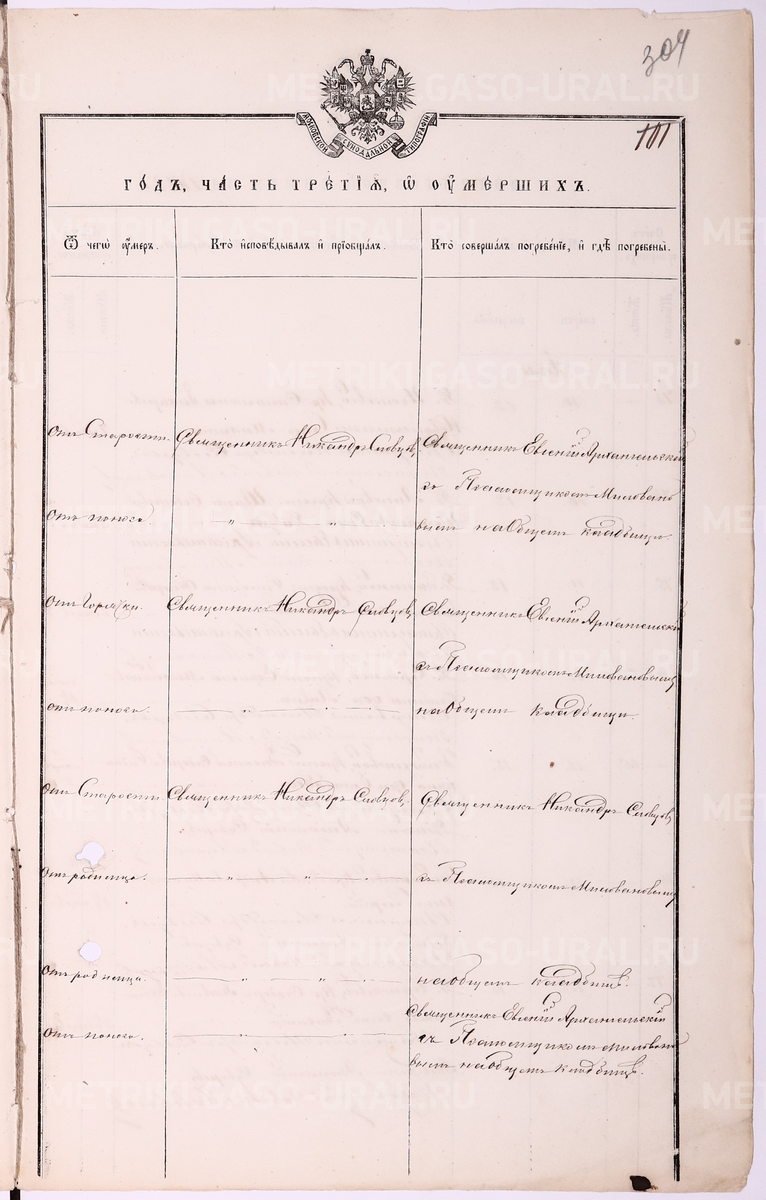 304
101
МОСКОВСКОЙ СѴНОДАЛЬНОЙ ТИПОГРАФІИ
ГО́ДЪ, ЧА́СТЬ ТРЕ́ТІѦ, Ѡ҆ ОУ҆МЕ́РШИХЪ.
Ѿ чегѡ̀ ᲂу҆́меръ. Кто̀ и҆сповѣ́дывалъ и҆ прїѻбща́лъ. Кто̀ соверша́лъ погребе́нїе, и҆ гдѣ̀ погребены̀.
Отъ Старости. Священникъ Никандръ Словцовъ Священникъ Евгеній Архангельскій
съ Псаломщикомъ Миловано
Отъ поноса " " вымъ на Общемъ кладбищи.
отъ Горячки. Священникъ Никандръ Словцовъ Священникъ Евгеній Архангельскій
съ Псаломщикомъ Миловановымъ
отъ поноса. " " на Общемъ кладбищи.
отъ Старости Священникъ Никандръ Словцовъ. Священникъ Никандръ Словцовъ
Отъ родимца. " " съ Псаломщикомъ Миловановымъ
Отъ родимца. " " на общемъ кладбищѣ.
Священникъ Евгеній Архангельскій
Отъ поноса. " " съ Псаломщикомъ Миловано
вымъ на Общемъ кладбищѣ.
METRIKI.GASO-URAL.RU